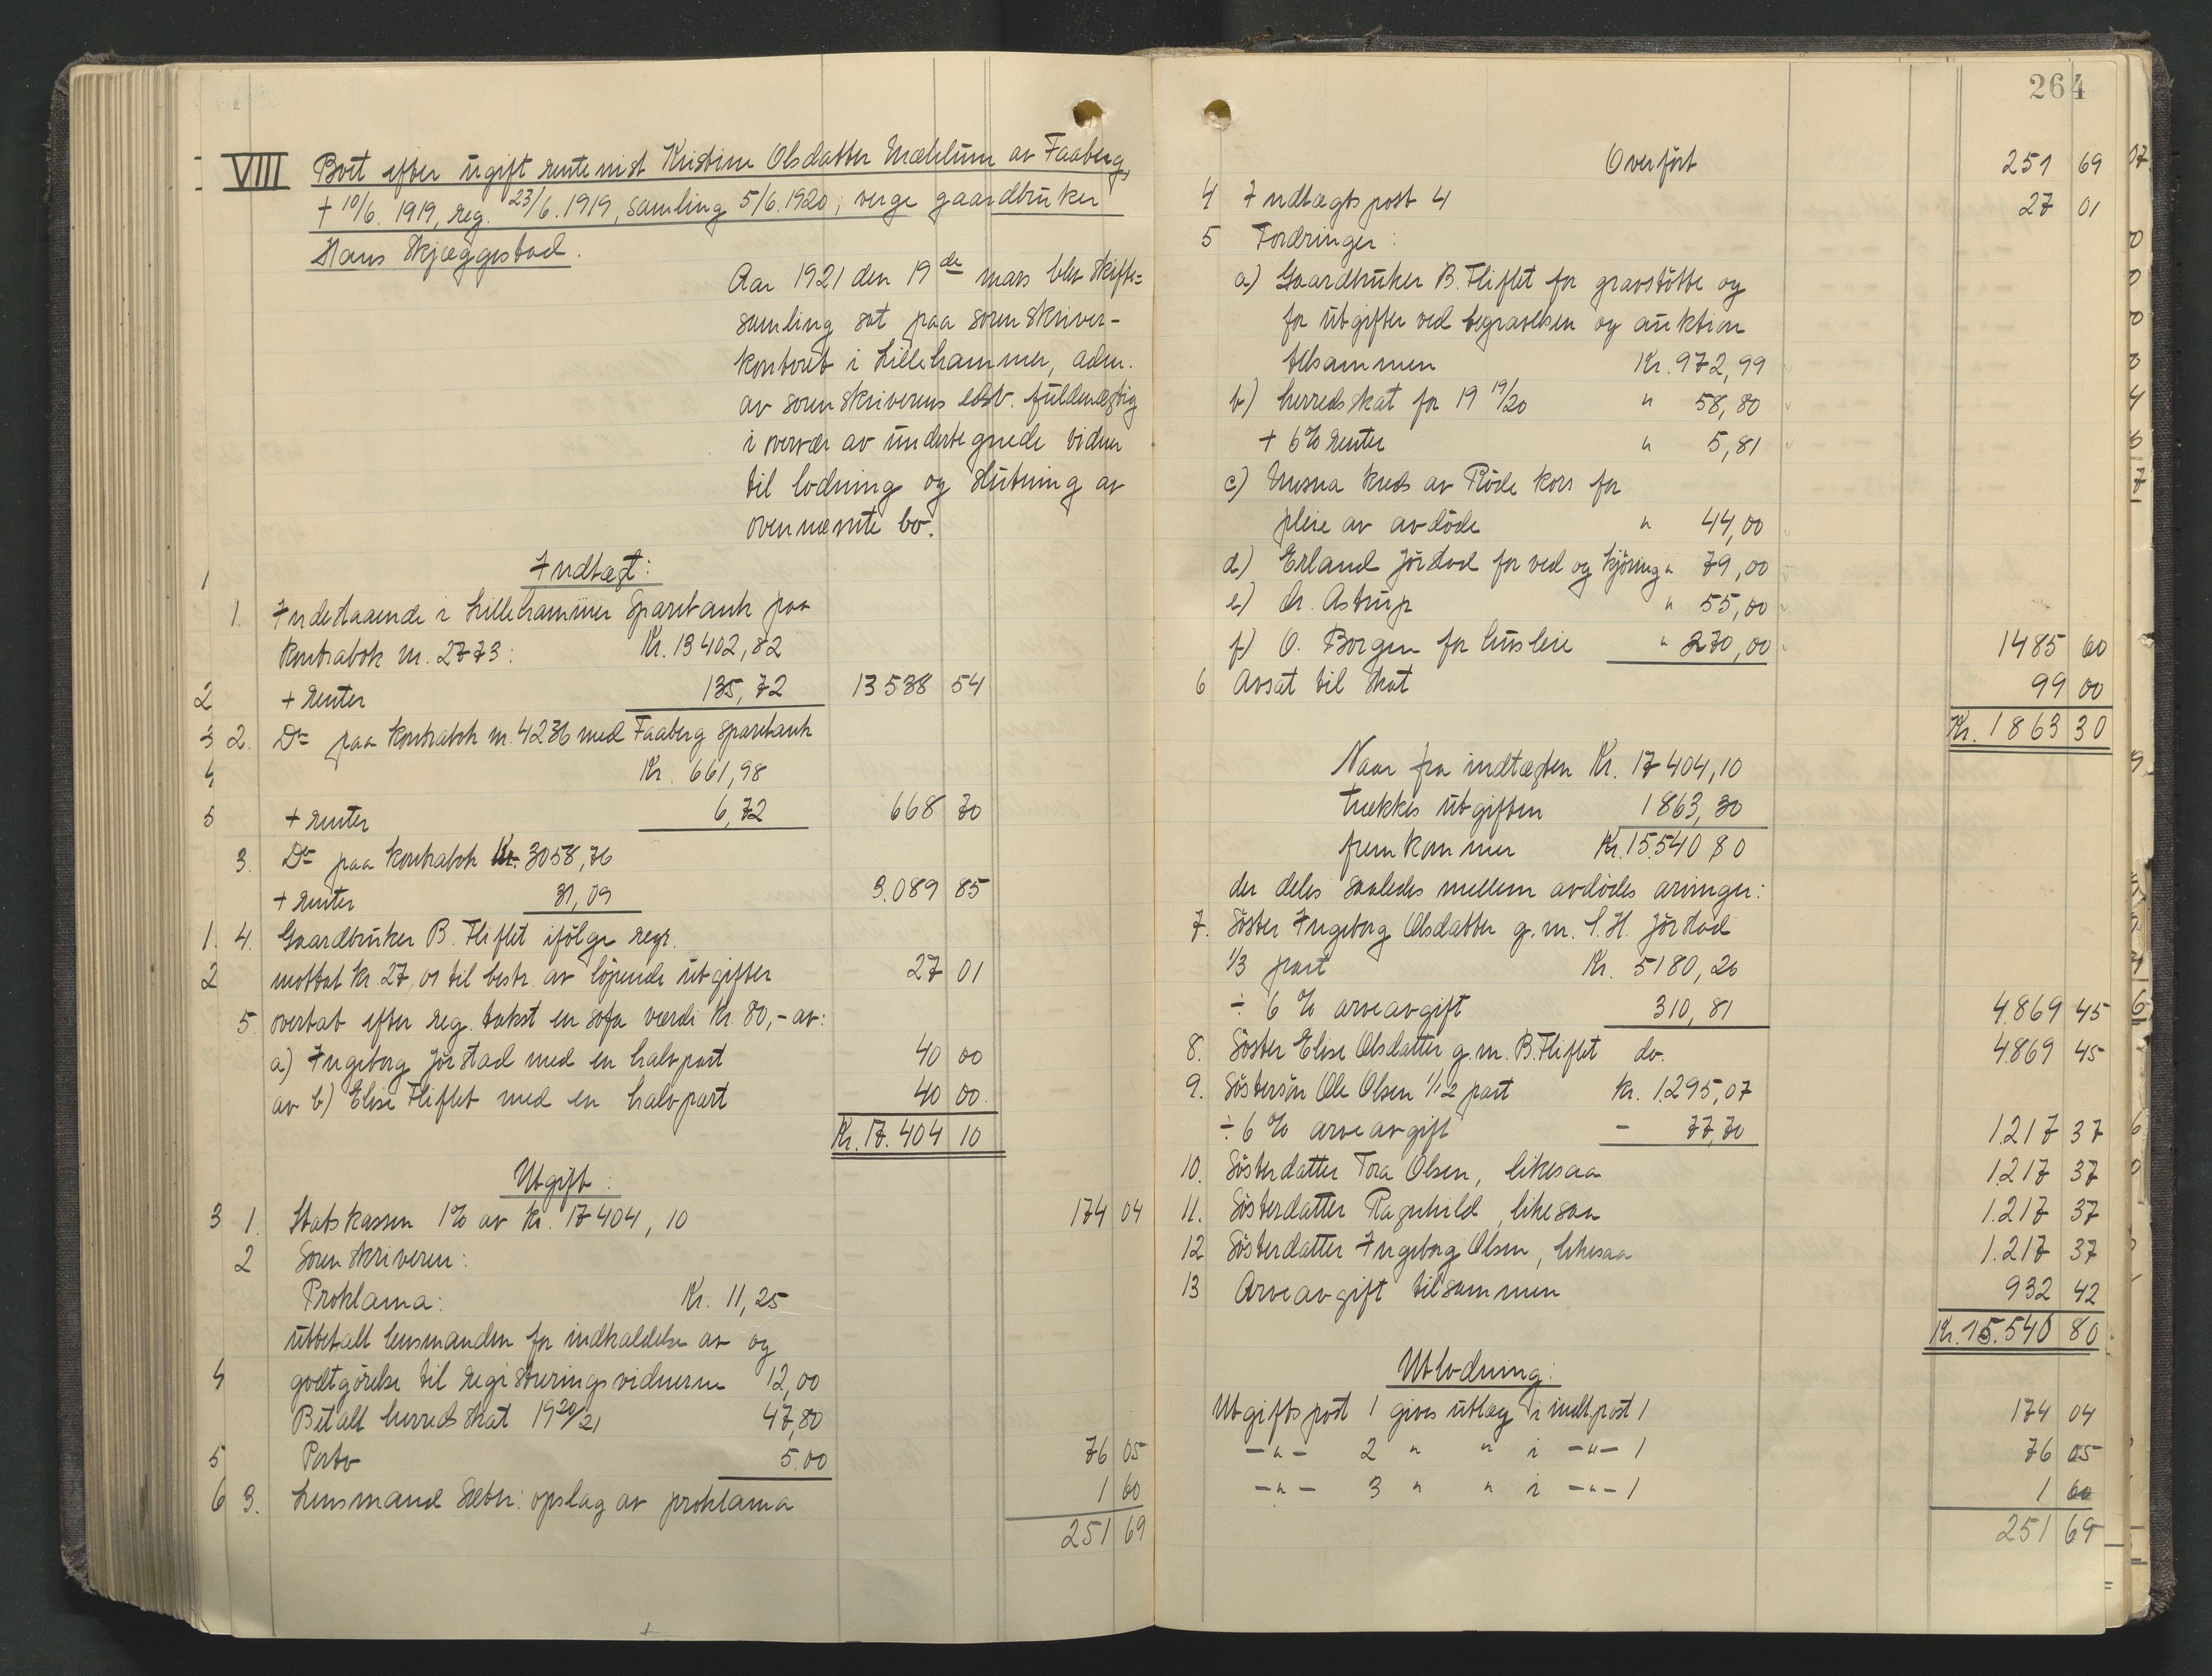 VIII Boet efter ugift rentenist Kristine Olsdatter Mæhlum av Faaberg,
+ 10/6. 1919, reg. 23/6. 1919, samling 5/6. 1920; verge gaardbruker
Hans Skjæggestad.
Aar 1921 den 19de mars blev skifte=
samling sat paa sorenskriver-
kontoret i Lillehammer, adm.
av sorenskriverens edsv. fuldmægtig
i overvær av undertegnede vidner
til lodning og slutning av
ovennævnte bo.
1 Indtægt:
1. Indestaaende i Lillehammer Sparebank paa
kontrabok nr. 2773: Kr. 13402,82
2 + renter 135,72 13538 54
3 2. Do paa kontrabok nr. 4236 med Faaberg sparebank
4 Kr. 661,98
5 + renter 6,72 668 70
3. Do paa kontrabok Kr. 3058,76
+ renter 31,09 3.089 85
1. 4. Gaardbruker B. Fliflet ifølge regn.
2 mottat kr. 27,01 til bestr. av løpende utgifter 27 01
5. overtat efter reg. takst en sofa værdi Kr. 80,- av:
a) Ingeborg Jørstad med en halvpart 40 00
av b) Elise Fliflet med en halvpart 40 00.
Kr. 17.404 10
Utgift:
3 1. Statskassen 1% av kr. 17404,10 174 04
2 Sorenskriveren:
Proklama: Kr. 11,25
utbetalt lensmanden for indkaldelse av og
4 godtgørelse til registreringsvidnerne 12,00
Betalt herredskat 1920/21 47,80
5 Porto 5.00 76 05
6 3. Lensmand Sæbn: opslag av proklama 1 60
251 69
264
Overført 251 69
4 Indtægtspost 4 27 01
5 Fordringer:
a) Gaardbruker B. Fliflet for gravstøtte og
for utgifter ved begravelsen og auktion
tilsammen Kr. 972,99
b) herredskat for 19 19/20 " 58,80
+ 6% renter " 5,81
c) Mesna kreds av Røde kors for
pleie av avdøde " 44,00
d) Erland Jørstad for ved og kjøring " 79,00
e) dr. Astrup " 55,00
f) O. Borgen for husleie " 270,00 1485 60
6 Avsat til skat 99 00
Kr. 1863 30
Naar fra indtægten Kr. 17404,10
trækkes utgiften 1863,30
fremkommer Kr. 15.540 80
der deles saaledes mellem avdødes arvinger:
7. Søster Ingeborg Olsdatter g.m. S.H. Jørstad
1/3 part Kr. 5180,26
÷ 6% arveavgift 310,81 4.869 45
8. Søster Elise Olsdatter g.m. B. Fliflet do. 4.869 45
9. Søstersøn Ole Olsen 1/12 part kr. 1.295,07
÷ 6% arveavgift - 77,70 1.217 37
10. Søsterdatter Tora Olsen, likesaa 1.217 37
11. Søsterdatter Ragnhild, likesaa 1.217 37
12 Søsterdatter Ingeborg Olsen, likesaa 1.217 37
13 Arveavgift tilsammen 932 42
Kr. 15.540 80
Utlodning:
Utgiftspost 1 gives utlæg i indt.post 1 174 04
-"- 2 " " i -"- 1 76 05
-"- 3 " " i -"- 1 1 60
251 69